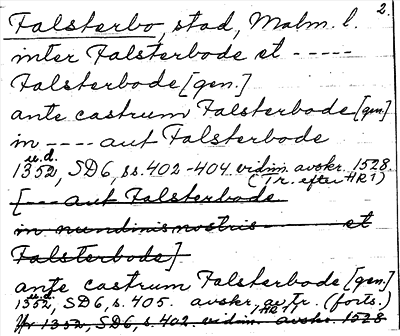 2.
Falsterbo, stad, Malm. l.
inter Falsterbode et -----
Falsterbode [gen.]
ante castrum Falsterbode [gen.]
in ---- aut Falsterbode
u.d.
1352, SD6, ss. 402-404 vidim. avskr. 1528
(Tr. efter HR 1)
[--- aut Falsterbode
in nundinis nostris ------ et
Falsterbode]
ante castrum Falsterbode [gen.]
u.d.
1352, SD6, s. 405. avskr. av Tr. (forts.)
HR 1)
1352, SD6, s. 402. vidim. avskr. 1528